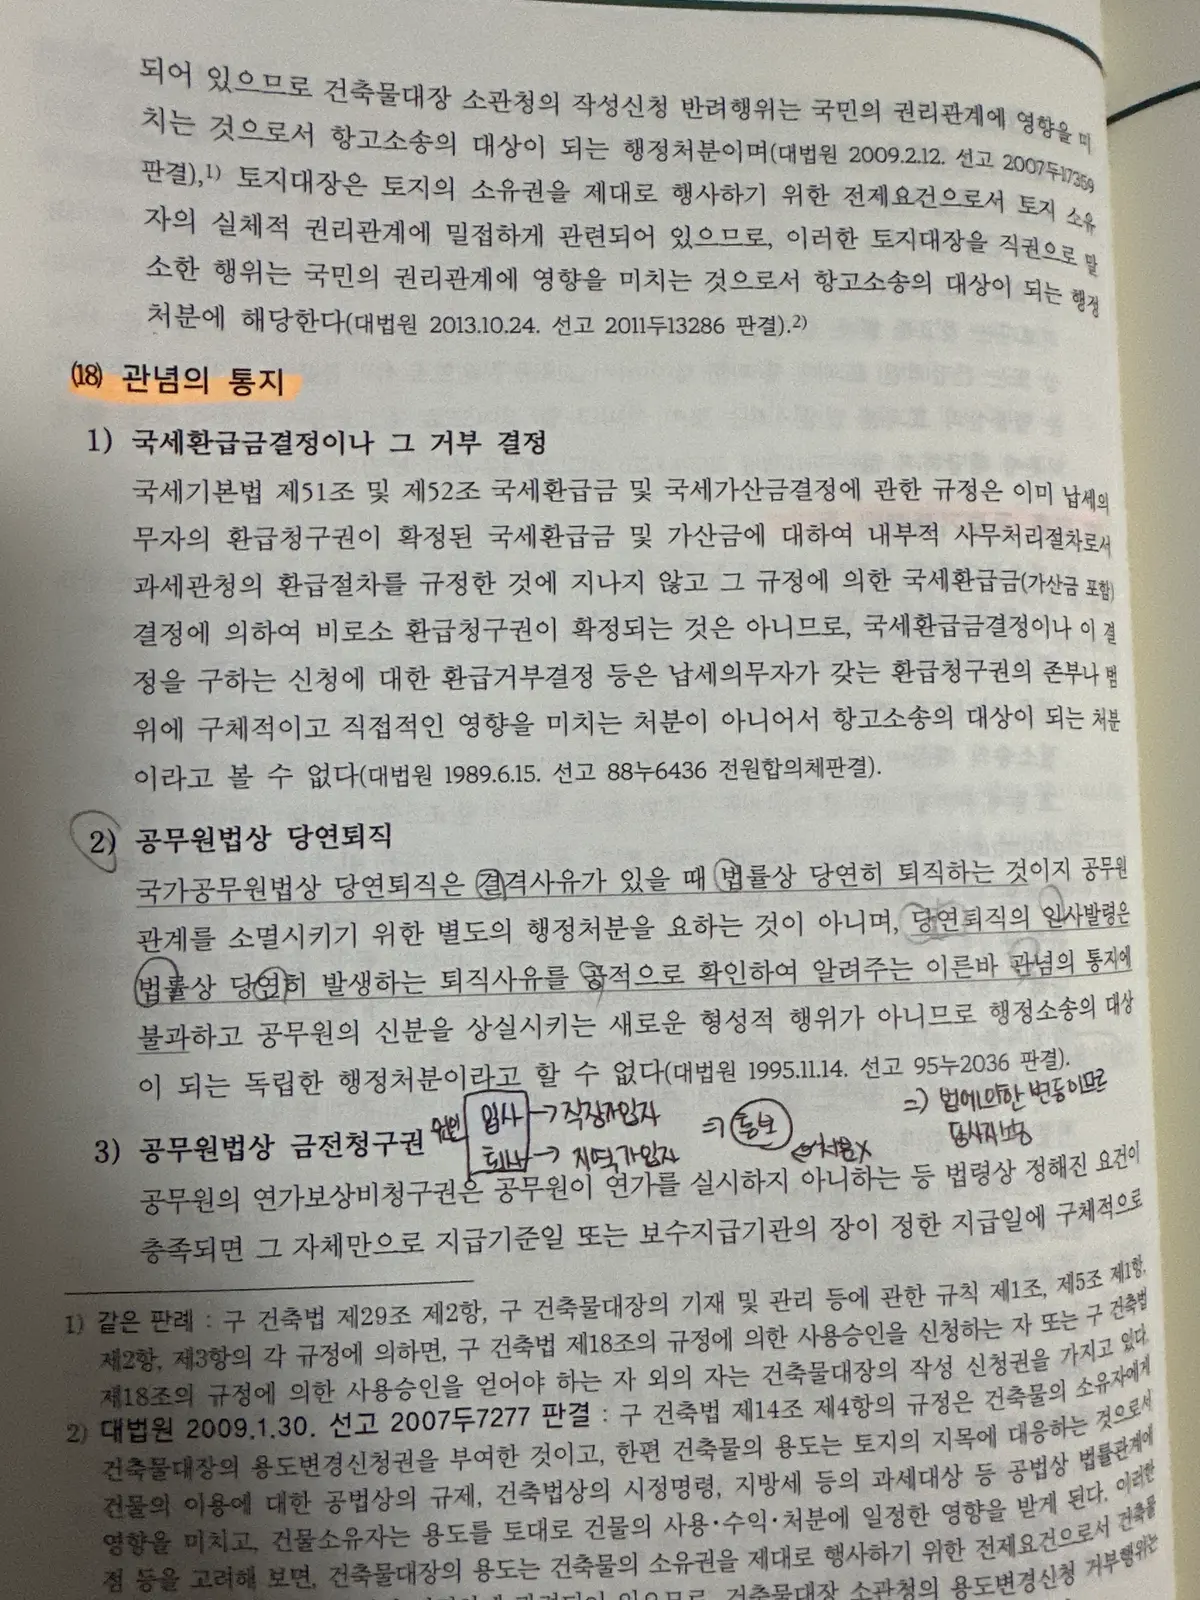 되어 있으므로 건축물대장 소관청의 작성신청 반려행위는 국민의 권리관계에 영향을 미
치는 것으로서 항고소송의 대상이 되는 행정처분이며(대법원 2009.2.12. 선고 2007두17359
판결),1) 토지대장은 토지의 소유권을 제대로 행사하기 위한 전제요건으로서 토지 소유
자의 실체적 권리관계에 밀접하게 관련되어 있으므로, 이러한 토지대장을 직권으로 말
소한 행위는 국민의 권리관계에 영향을 미치는 것으로서 항고소송의 대상이 되는 행정
처분에 해당한다(대법원 2013.10.24. 선고 2011두13286 판결).2)
(18) 관념의 통지
1) 국세환급금결정이나 그 거부 결정
국세기본법 제51조 및 제52조 국세환급금 및 국세가산금결정에 관한 규정은 이미 납세의
무자의 환급청구권이 확정된 국세환급금 및 가산금에 대하여 내부적 사무처리절차로서
과세관청의 환급절차를 규정한 것에 지나지 않고 그 규정에 의한 국세환급금(가산금 포함)
결정에 의하여 비로소 환급청구권이 확정되는 것은 아니므로, 국세환급금결정이나 이 결
정을 구하는 신청에 대한 환급거부결정 등은 납세의무자가 갖는 환급청구권의 존부나 범
위에 구체적이고 직접적인 영향을 미치는 처분이 아니어서 항고소송의 대상이 되는 처분
이라고 볼 수 없다(대법원 1989.6.15. 선고 88누6436 전원합의체판결).
2) 공무원법상 당연퇴직
국가공무원법상 당연퇴직은 결격사유가 있을 때 법률상 당연히 퇴직하는 것이지 공무원
관계를 소멸시키기 위한 별도의 행정처분을 요하는 것이 아니며, 당연퇴직의 인사발령은
법률상 당연히 발생하는 퇴직사유를 공적으로 확인하여 알려주는 이른바 관념의 통지에
불과하고 공무원의 신분을 상실시키는 새로운 형성적 행위가 아니므로 행정소송의 대상
이 되는 독립한 행정처분이라고 할 수 없다(대법원 1995.11.14. 선고 95누2036 판결).
원인 입사 → 직장가입자 ⇒ 통보 ⇒ 법에 의한 변동이므로
퇴사 → 지역가입자 처분X
3) 공무원법상 금전청구권
공무원의 연가보상비청구권은 공무원이 연가를 실시하지 아니하는 등 법령상 정해진 요건이
충족되면 그 자체만으로 지급기준일 또는 보수지급기관의 장이 정한 지급일에 구체적으로
1) 같은 판례 : 구 건축법 제29조 제2항, 구 건축물대장의 기재 및 관리 등에 관한 규칙 제1조, 제5조 제1항,
제2항, 제3항의 각 규정에 의하면, 구 건축법 제18조의 규정에 의한 사용승인을 신청하는 자 또는 구 건축법
제18조의 규정에 의한 사용승인을 얻어야 하는 자 외의 자는 건축물대장의 작성 신청권을 가지고 있다.
2) 대법원 2009.1.30. 선고 2007두7277 판결 : 구 건축법 제14조 제4항의 규정은 건축물의 소유자에게
건축물대장의 용도변경신청권을 부여한 것이고, 한편 건축물의 용도는 토지의 지목에 대응하는 것으로서
건물의 이용에 대한 공법상의 규제, 건축법상의 시정명령, 지방세 등의 과세대상 등 공법상 법률관계에
영향을 미치고, 건물소유자는 용도를 토대로 건물의 사용·수익·처분에 일정한 영향을 받게 된다. 이러한
점 등을 고려해 보면, 건축물대장의 용도는 건축물의 소유권을 제대로 행사하기 위한 전제요건으로서 건축물
있으므로, 건축물대장 소관청의 용도변경신청 거부행위는